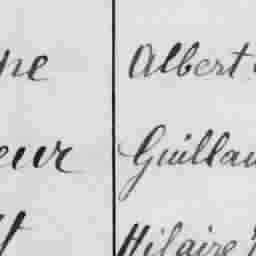 pe Albert
eur Guillau
t Hilaire